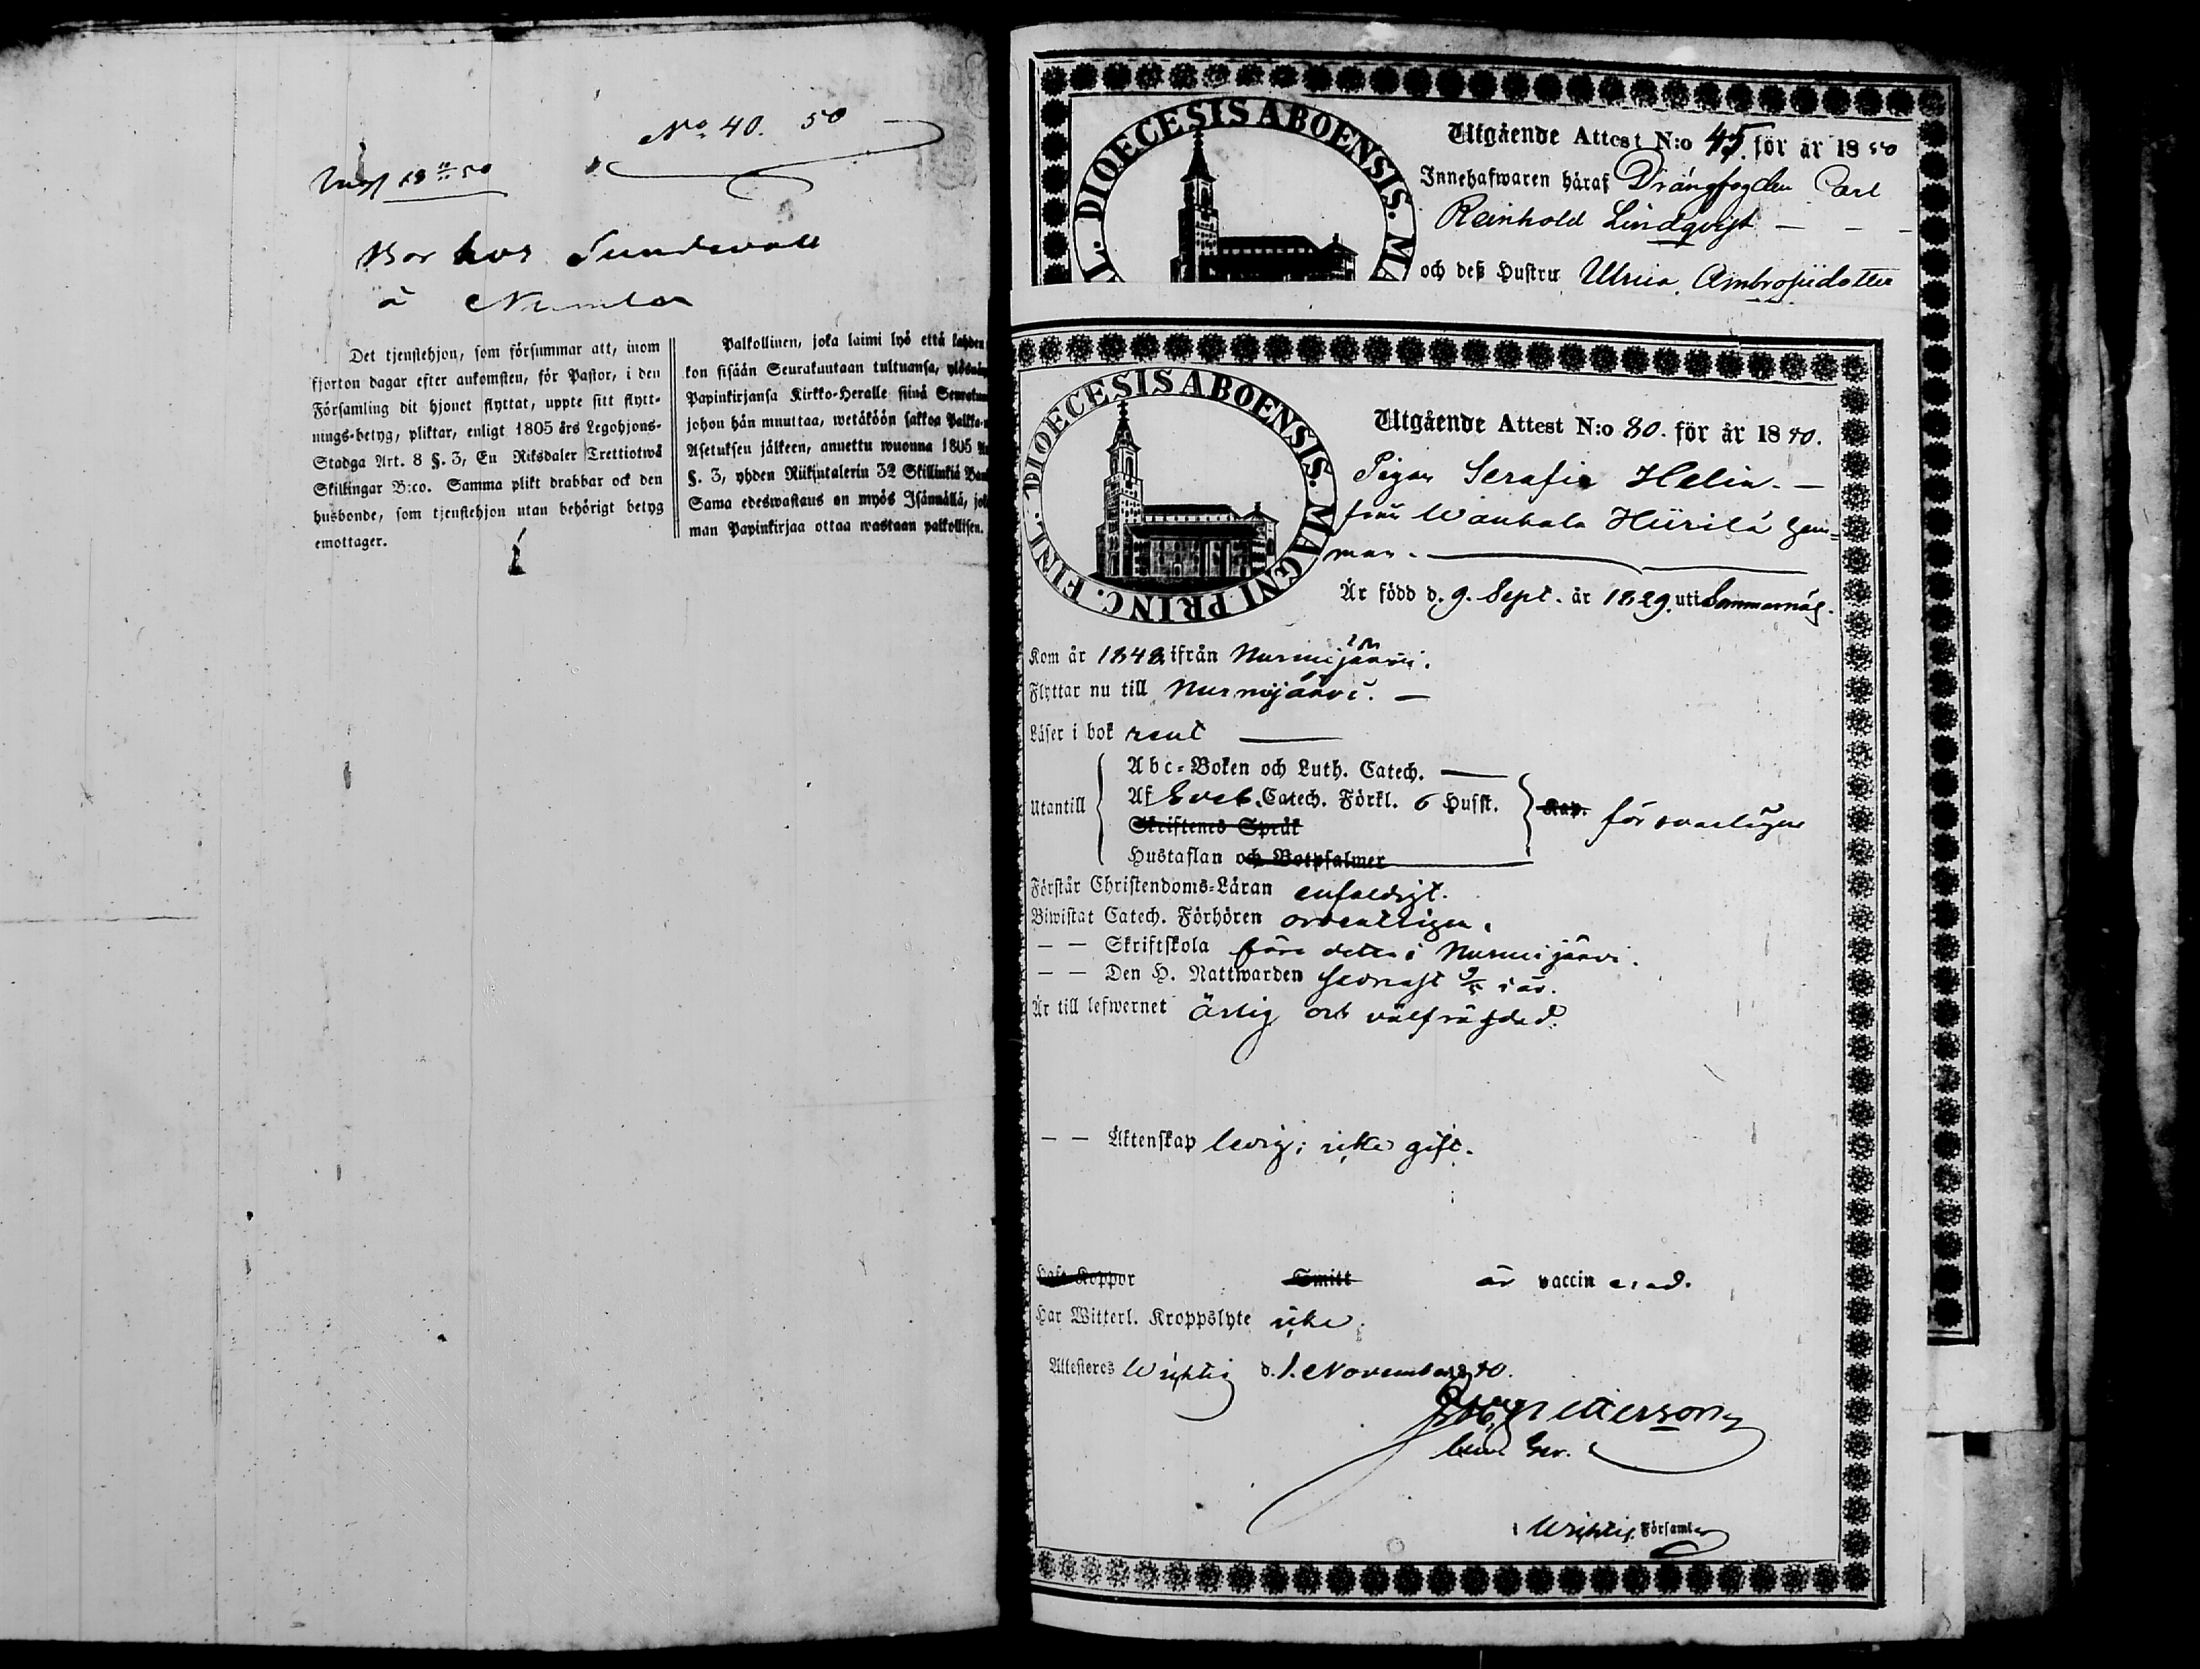 No 40. 50
Bor hos Sundwall
à Numlax
Det tjenstehjon, som försummar att, inom
fjorton dagar efter ankomsten, för Pastor, i den
Församling dit hjonet flyttat, uppte sitt flytt-
nings-betyg, pliktar, enligt 1805 års Legohjons-
Stadga Art. 8 §. 3, En Riksdaler Trettiotwå
Skillingar B:co. Samma plikt drabbar ock den
husbonde, som tjenstehjon utan behörigt betyg
emottager.
Palkollinen, joka laimi lyö että kahden
kon sisään Seurakuntaan tultuansa, ylösnäy
Papinkirjansa Kirkko-Heralle siinä Seurakun
johon hän muuttaa, wetäköön sakkoa Palkka-
Asetuksen jälkeen, annettu wuonna 1805
§. 3, yhden Riikintalerin 32 Skillinkiä Ban
Sama edeswastaus on myös Isännällä, jok
man Papinkirjaa ottaa wastaan palkollisen.
DIOECESIS ABOENSIS. MA
Utgående Attest N:o 45. för år 1850
Innehafwaren häraf Drängfogden Carl
Reinhold Lindqvist — — —
och deß Hustru Ulrica Ambrosiidotter
DIOECESIS ABOENSIS. MAGNI PRINC. FINL.
Utgående Attest N:o 80. för år 1850.
Pigan Serafia Helin. —
från Wanhala Hiirilä hem=
man. —
Är född d. 9. Sept. år 1829. uti Sammanäs.
Kom år 1848 ifrån Nurmijärvi.
Flyttar nu till Nurmijärvi. —
Läser i bok rent —
Utantill
Abc-Boken och Luth. Catech. —
Af Sveb. Catech. Förkl. 6 Hufst.
Skriftenes Språk
Hustaflan och Botpsalmer
Kap. försvarligen
Förstår Christendoms-Läran enfaldigt.
Biwistat Catech. Förhören ordentligen.
— — Skriftskola före detta i Nurmijärvi.
— — Den H. Nattwarden sednast 9/5 i år.
Är till lefwernet ärlig och välfräjdad.
— — Äktenskap ledig; icke gift.
Haft Koppor Smitt är vaccinerad.
Har Witterl. Kroppslyte icke.
Attesteras Wichtis d. 1. November 1850.
Petterson
i Wichtis Församl.